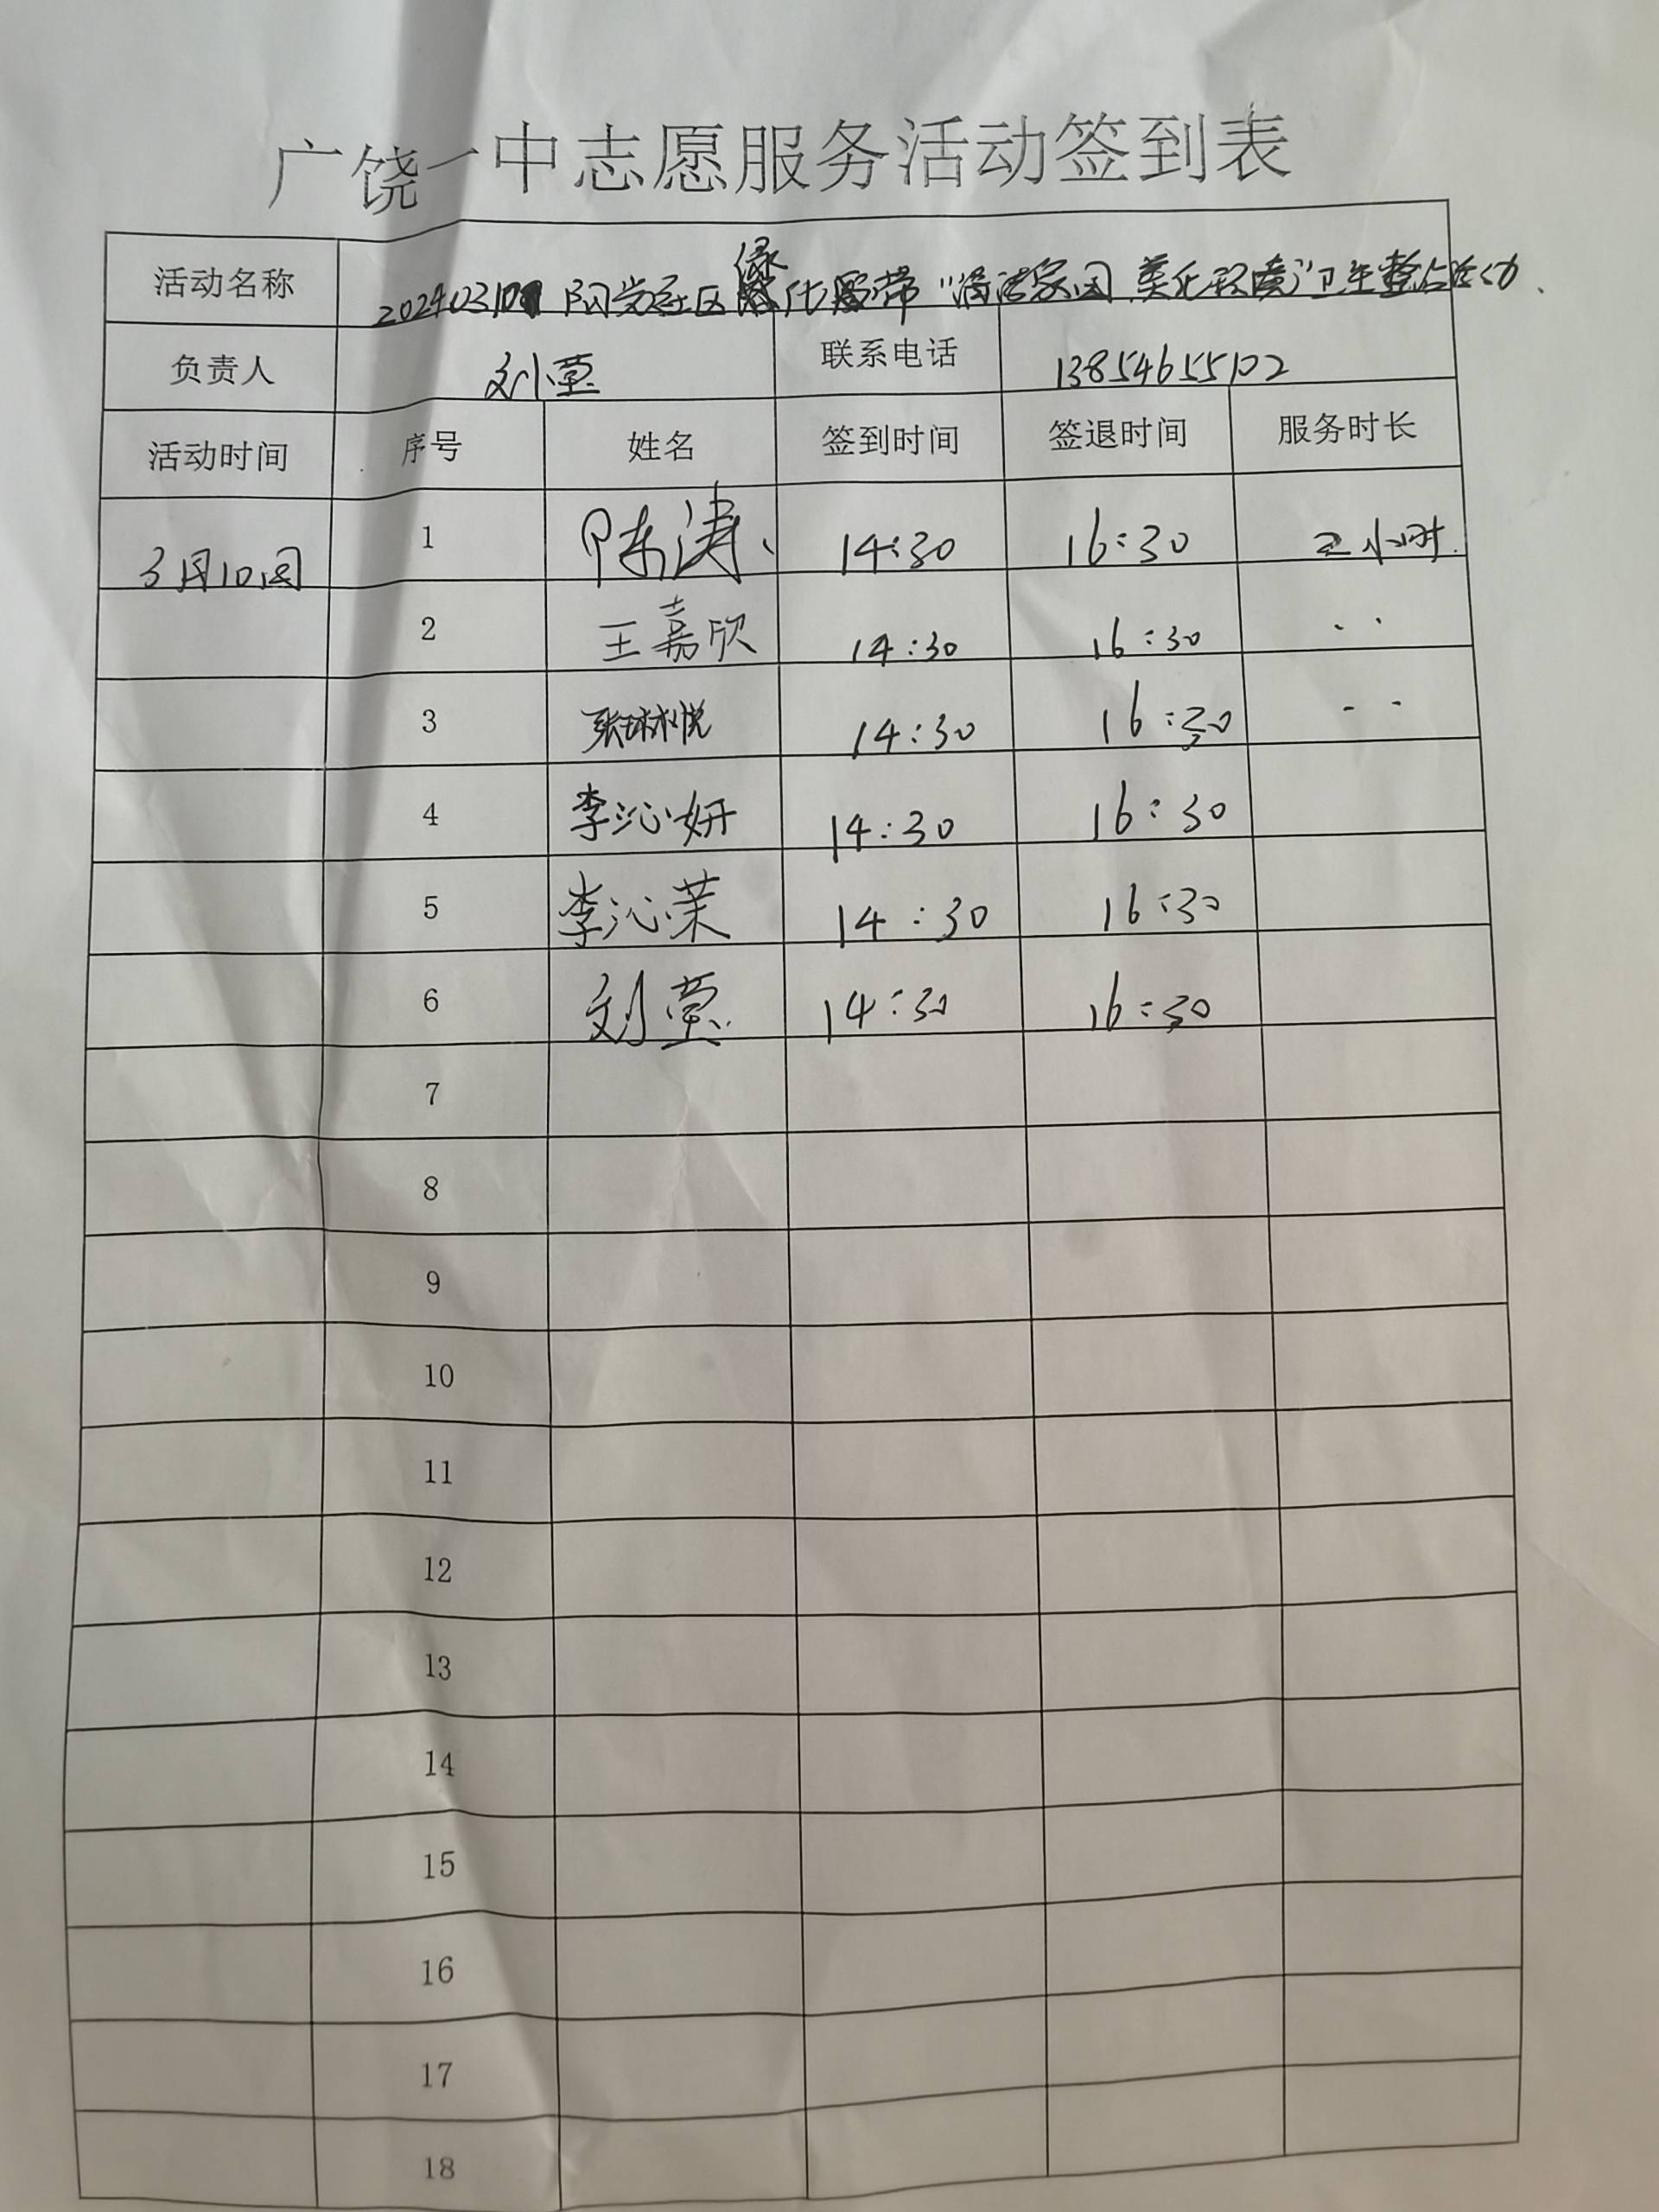 广饶一中志愿服务活动签到表
活动名称 20240310 阳光社区绿化带“清洁家园 美化环境”卫生整治活动
负责人 刘萱 联系电话 13854655102
活动时间 序号 姓名 签到时间 签退时间 服务时长
3月10日 1 陈涛 14:30 16:30 2小时
2 王嘉欣 14:30 16:30 ··
3 张琳悦 14:30 16:30 ··
4 李沁妍 14:30 16:30
5 李沁茉 14:30 16:30
6 刘萱 14:30 16:30
7
8
9
10
11
12
13
14
15
16
17
18